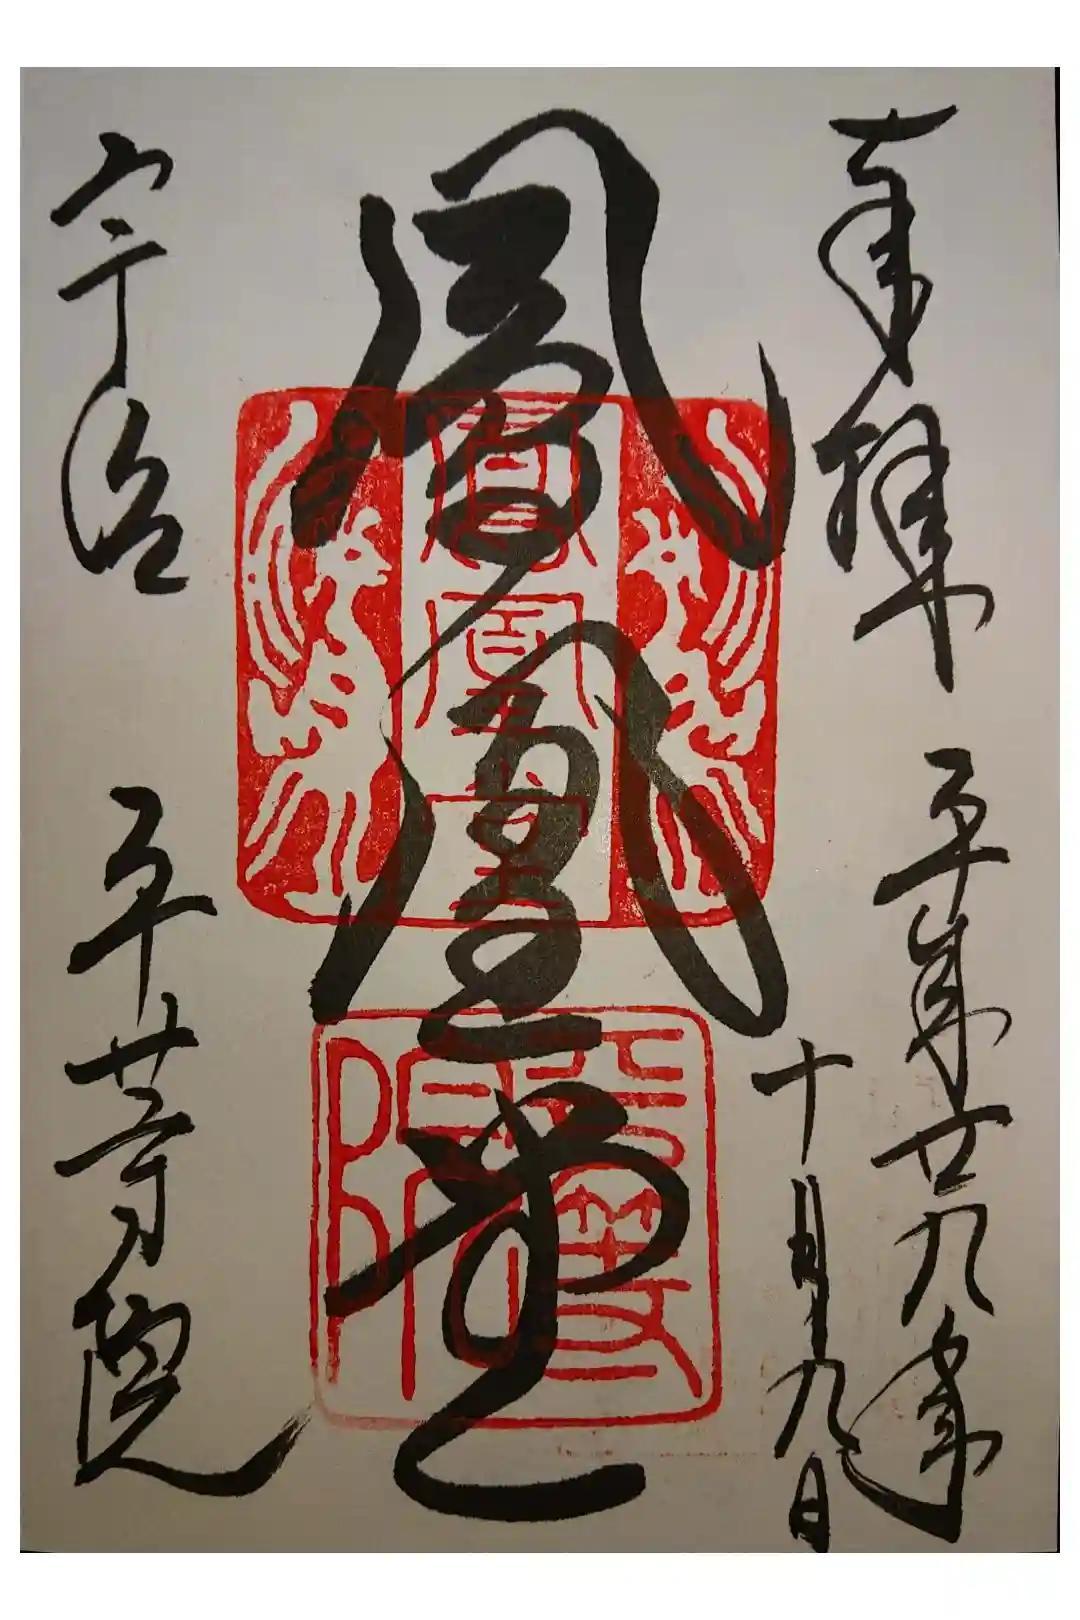 奉拝
平成廿九年
十月九日
鳳凰堂
鳳凰堂
平等院
宇治
平等院